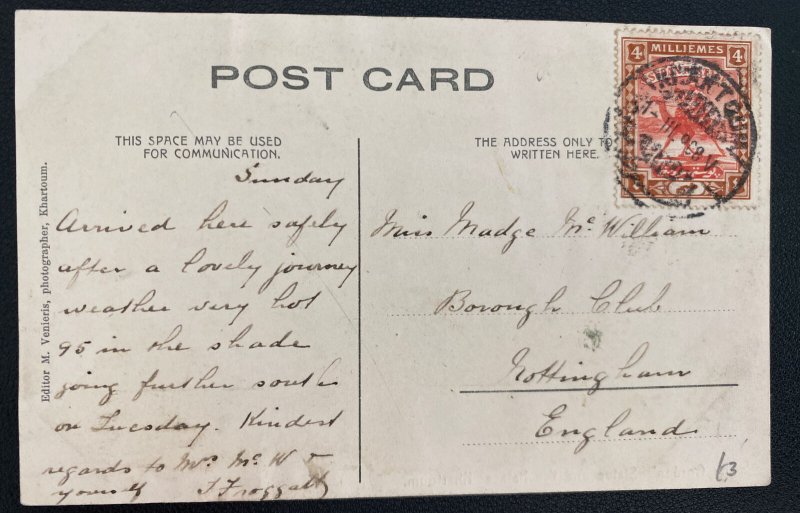 POST CARD
THIS SPACE MAY BE USED
FOR COMMUNICATION.
THE ADDRESS ONLY TO
WRITTEN HERE.
Editor M. Venieris, photographer, Khartoum.
Sunday
Arrived here safely
after a lovely journey
weather very hot
95 in the shade
going further south
on Tuesday. Kindest
regards to Mrs Mc W &
yourself J Froggatt
4 MILLIEMES 4
KHARTOUM
Miss Madge Mc William
Borough Club
Nottingham
England